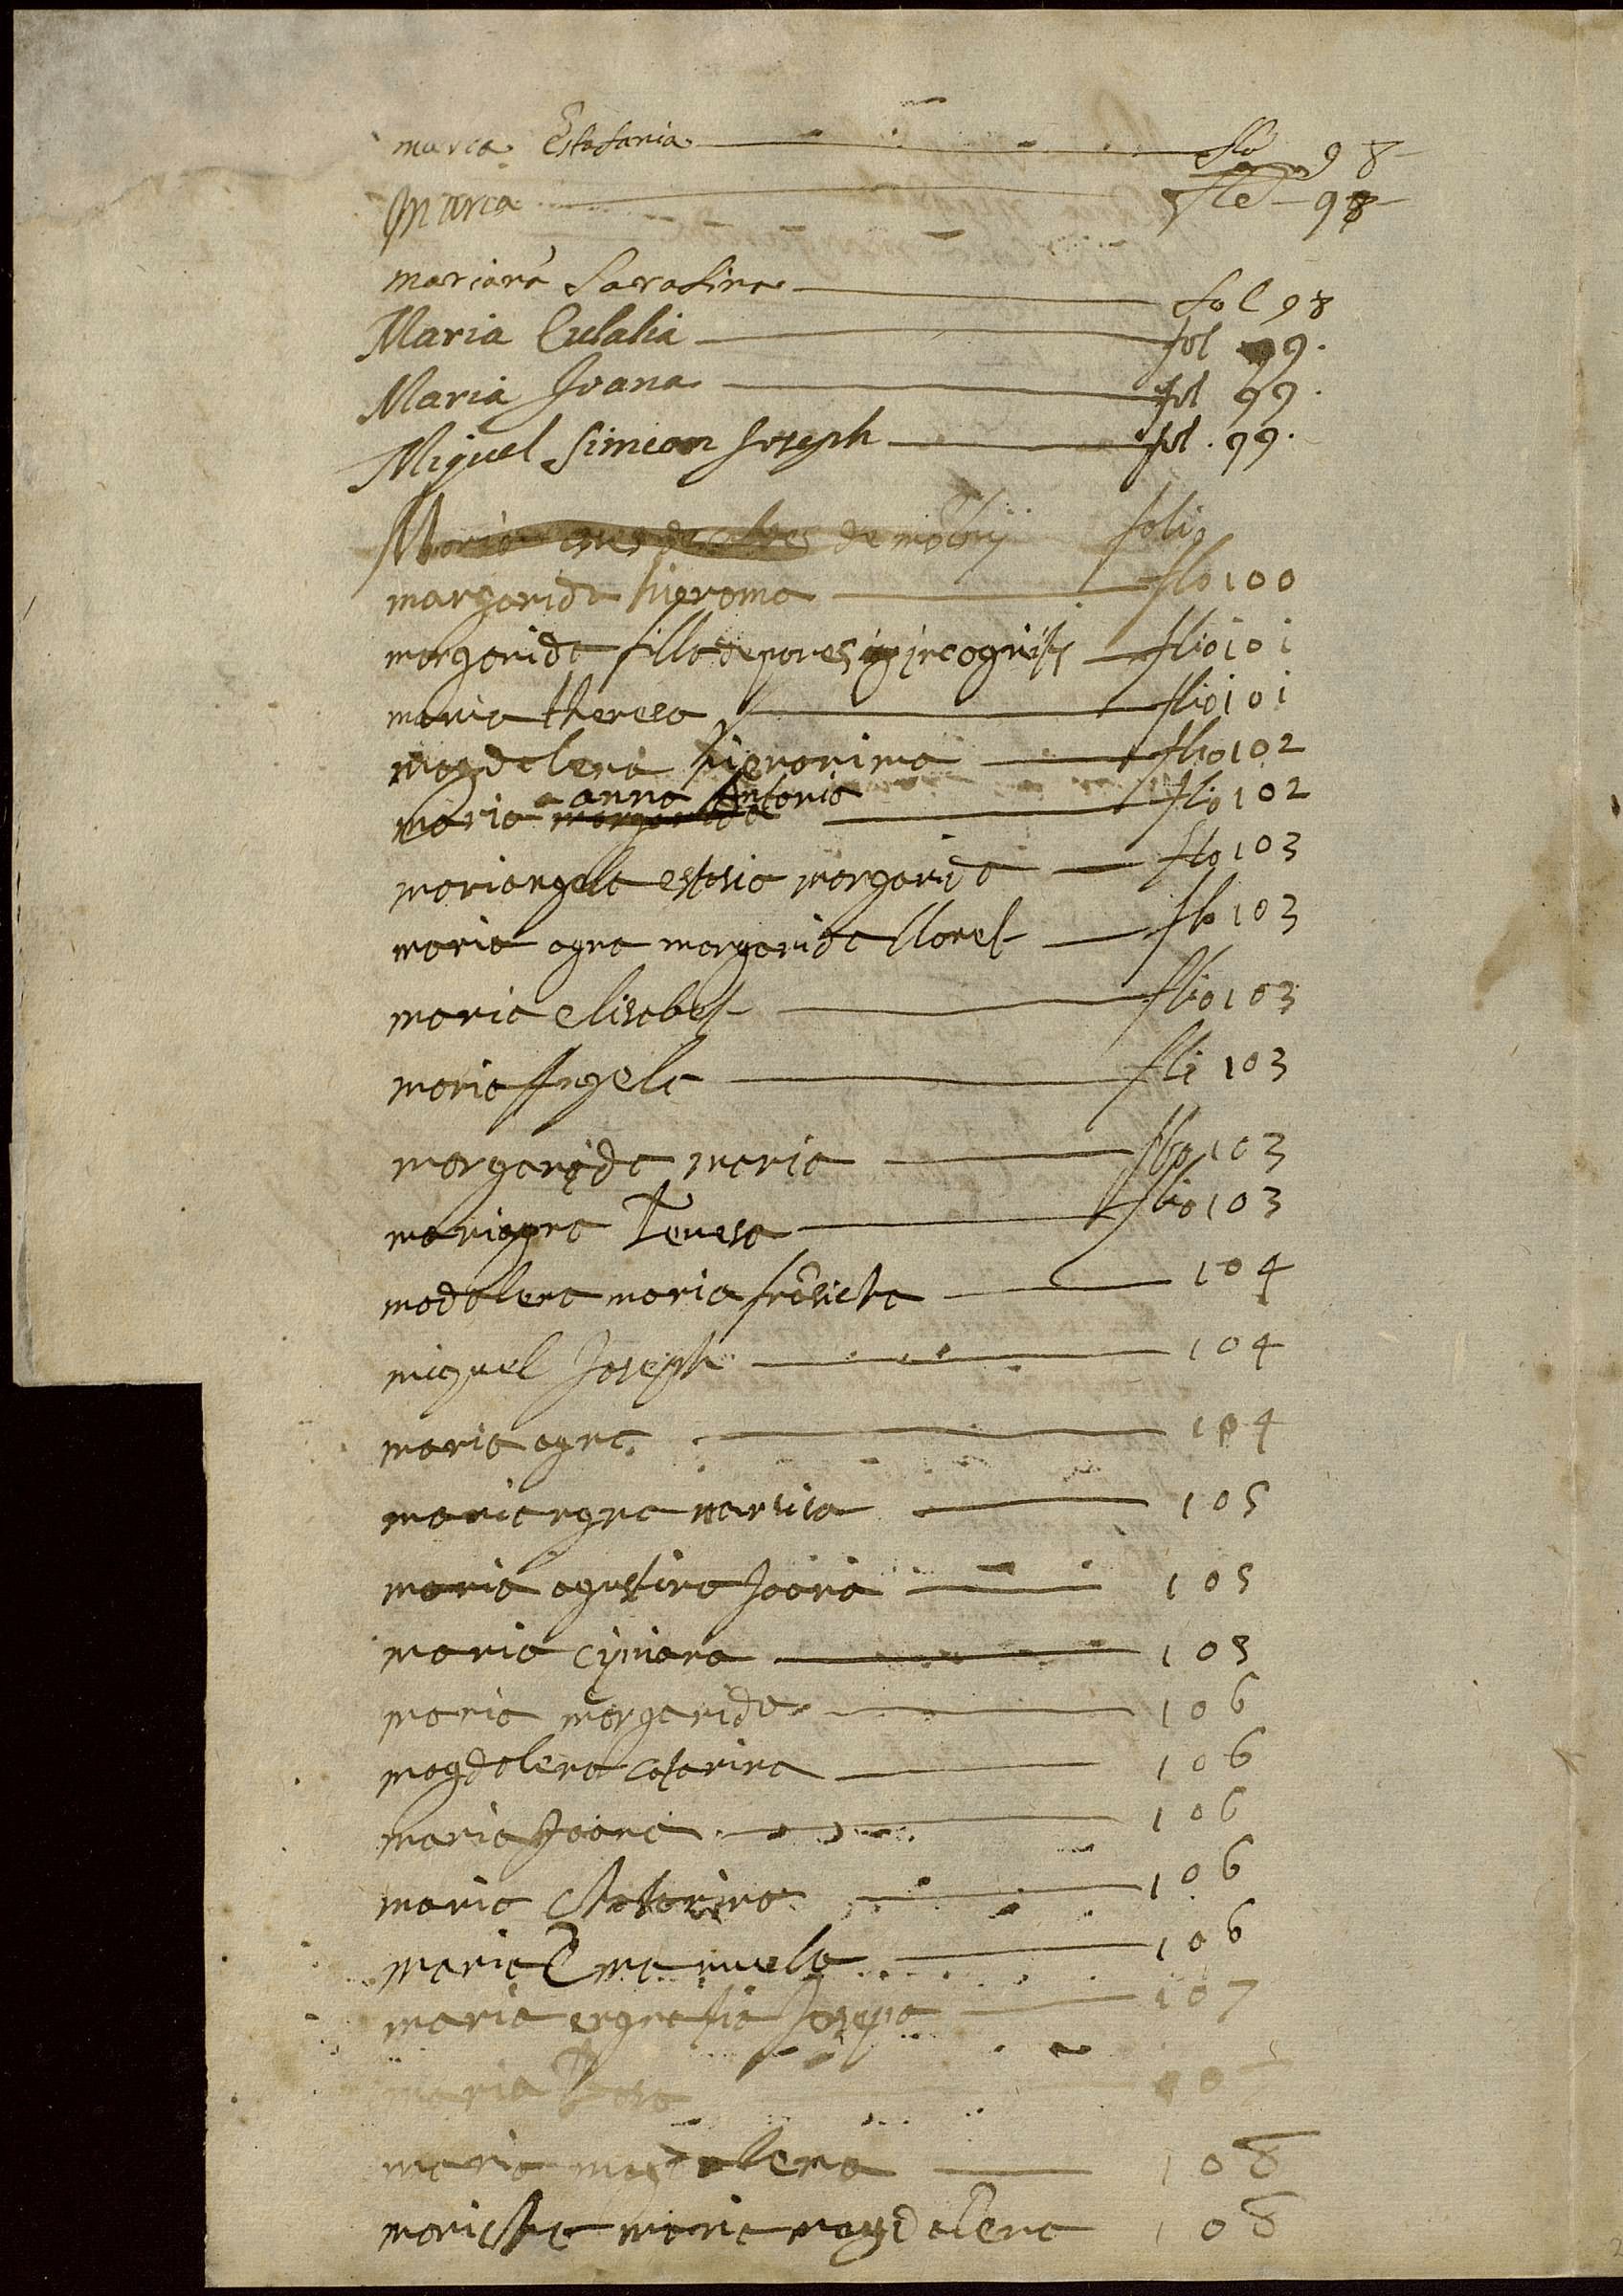 maria Estefania flo 98
Maria flo 98
mariana Sarafina fol 98
Maria Eulalia fol 99.
Maria Joana fol 99.
Miguel Simeon Joseph fol. 99.
Maria de folio
margarida hieroma flo 100
margarida filla de pares incognits flio 101
maria theresa flio 101
magdelena hieronima flio 102
anna Antonia
maria margarida flio 102
mariangela margarida flo 103
maria agna margarida lloret flo 103
maria elisabet flio 103
maria Angela fli 103
margarida maria flio 103
mariagna Teresa flio 103
madalena maria 104
miguel Joseph 104
maria agna 104
mariangna narsisa 105
maria agustina Joana 105
maria 105
maria margarida 106
magdalena catarina 106
maria Joana 106
maria Catarina 106
maria Emanuela 106
maria engratia Josepa 107
maria Rosa 107
maria magdalena 108
maria magdalena 108